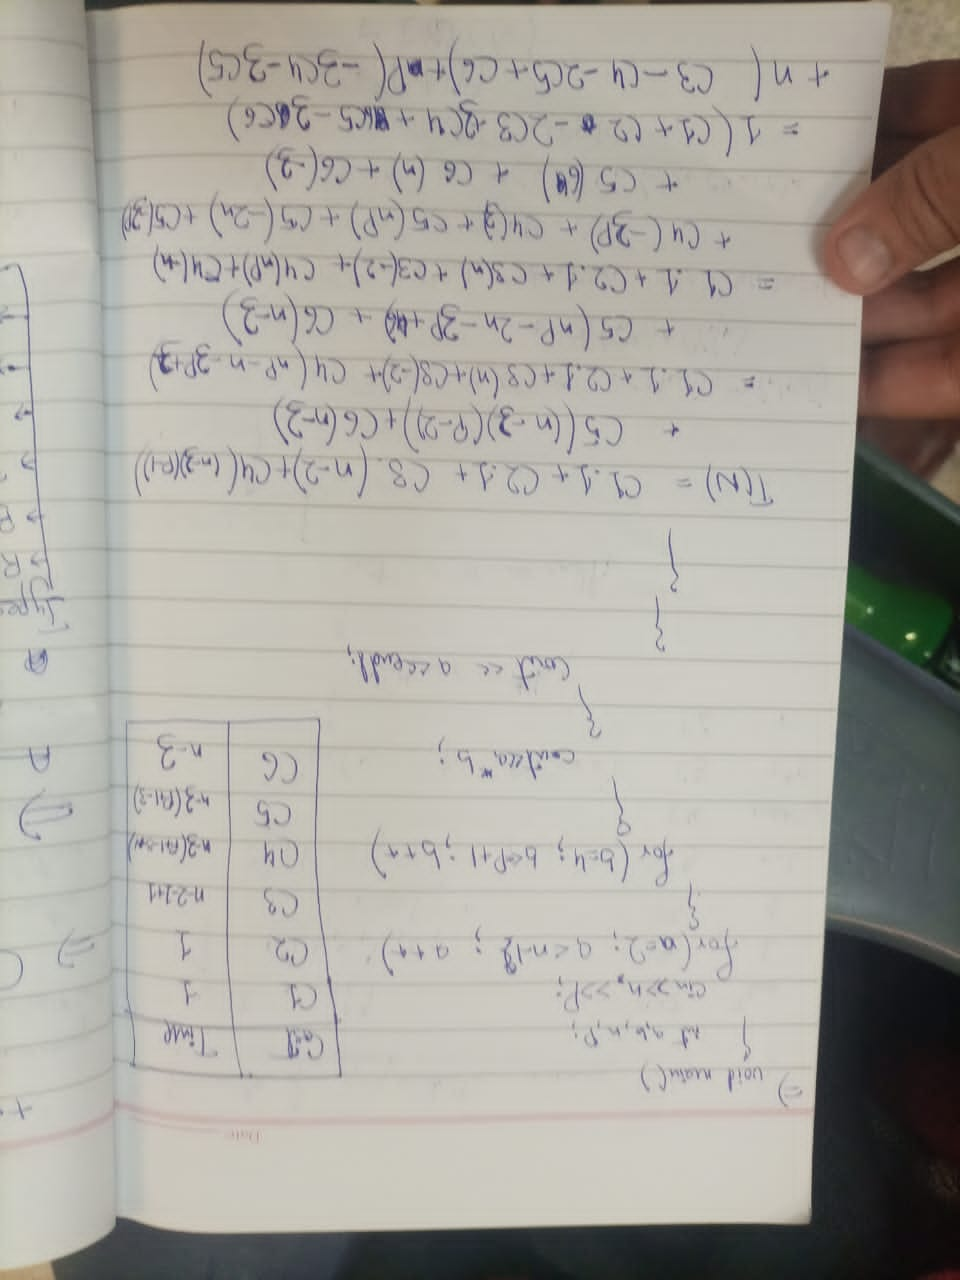 Date:
=) void main()
{ int a,b,n,P;
cin>>n,>>P;
for (a=2; a<n-1; a++)
{
for (b=4; b<P+1; b++)
{
cout<<a*b;
}
cout << a<<endl;
}
}
Cost Time
C1 1
C2 1
C3 n-2-1+1
C4
C5 n-3(P+1-3)
C6 n-3
T(N) = C1.1 + C2.1 + C3.(n-2)+C4((n-3)(P-1))
+ C5((n-3)(P-2))+C6(n-3)
= C1.1 + C2.1 + C3(n)+C3(-2)+ C4(nP-n-3P+3)
+ C5(nP-2n-3P+6) + C6(n-3)
= C1.1 + C2.1 + C3(n)+C3(-2)+ C4(nP)+C4(-n)
+ C4(-3P) + C4(3)+C5(nP)+C5(-2n)+C5(-3P)
+ C5(6) + C6(n)+C6(-3)
= 1(C1+C2-2C3+3C4+6C5-3C6)
+ n( C3-C4-2C5+C6)+P(-3C4-3C5)
Type
R
R
A